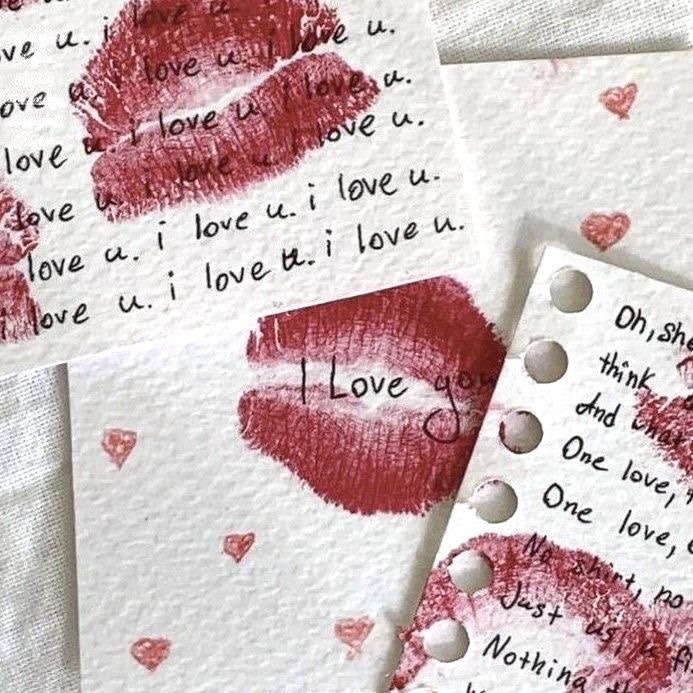 i love u
ve u. i love u. i love u.
ove u. i love u. i love u.
love u. i love u. i love u.
love u. i love u. i love u.
love u. i love u. i love u.
i love u. i love u. i love u.
I Love you
Oh, she
think
And what
One love,
One love,
No shirt, no
Just us, u
Nothing